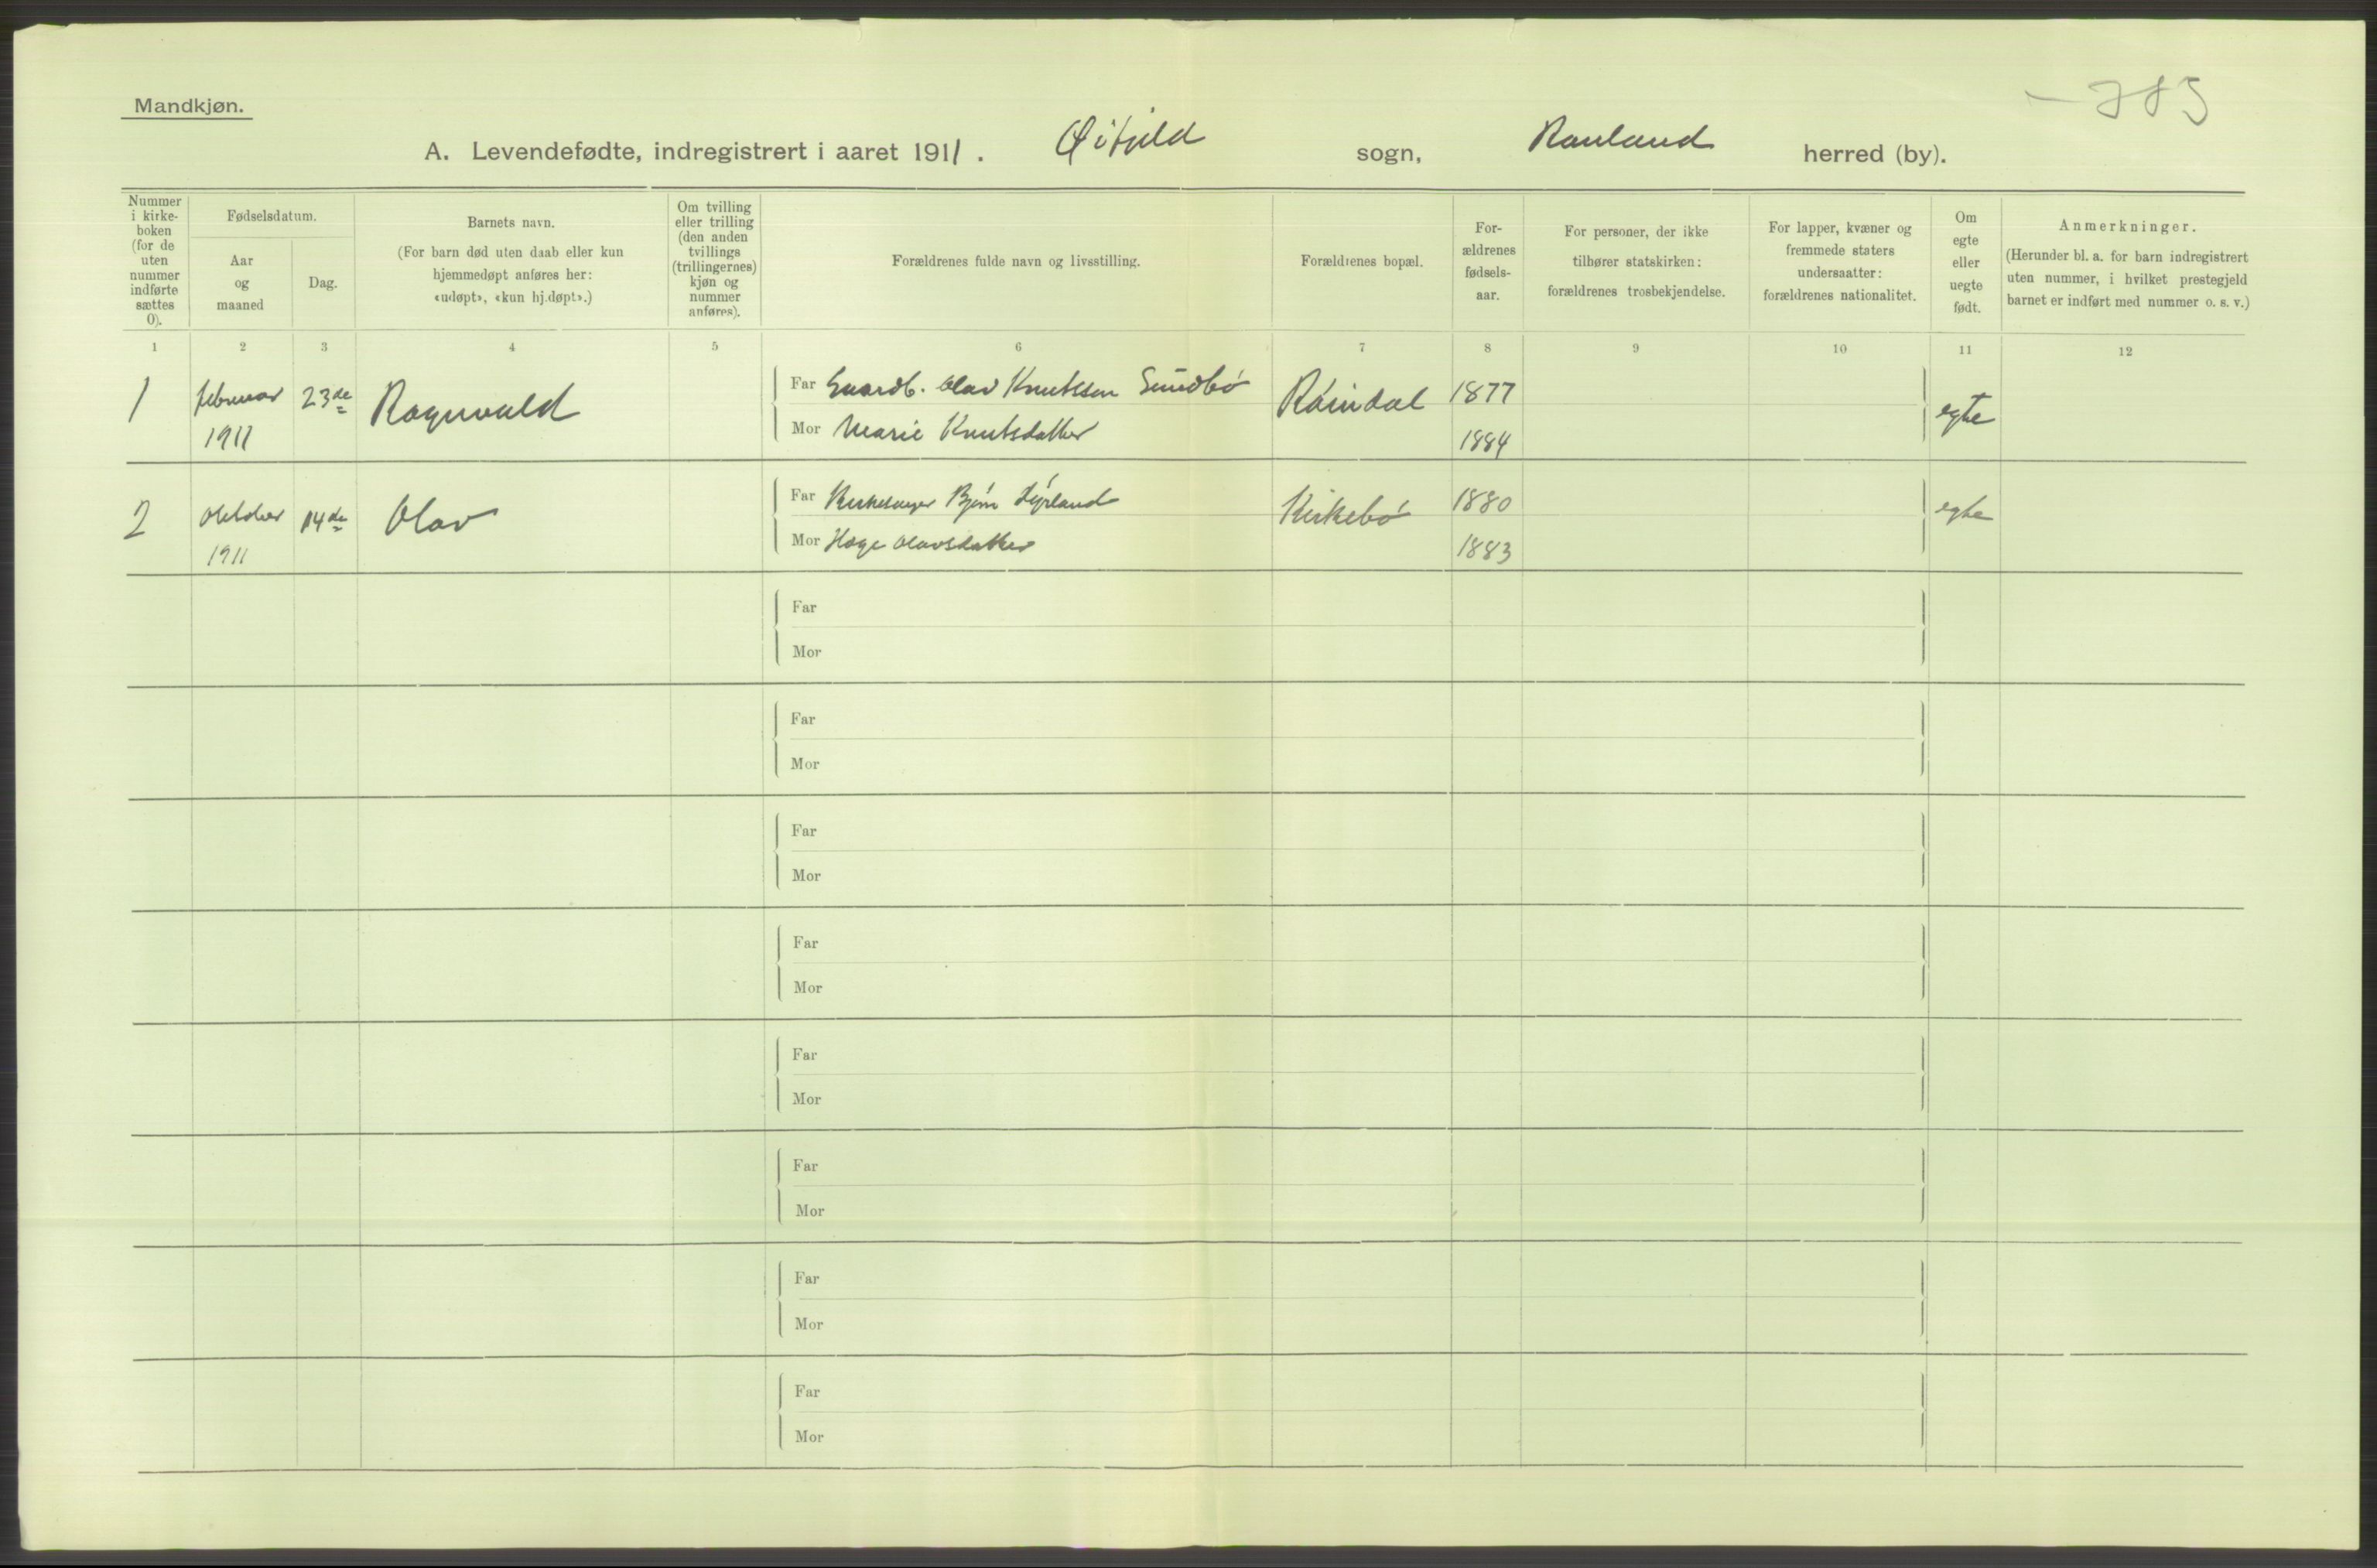 Mandkjøn.
A. Levendefødte, indregistrert i aaret 1911. Øifjeld sogn, Rauland herred (by).
Nummer
i kirke-
boken
(for de
uten
nummer
indførte
sættes
0).
Fødselsdatum.
Aar
og
maaned
Dag.
Barnets navn.
(For barn død uten daab eller kun
hjemmedøpt anføres her:
«udøpt», «kun hj.døpt».)
Om tvilling
eller trilling
(den anden
tvillings
(trillingernes)
kjøn og
nummer
anføres).
Forældrenes fulde navn og livsstilling.
Forældrenes bopæl.
For-
ældrenes
fødsels-
aar.
For personer, der ikke
tilhører statskirken:
forældrenes trosbekjendelse.
For lapper, kvæner og
fremmede staters
undersaatter:
forældrenes nationalitet.
Om
egte
eller
uegte
født.
Anmerkninger.
(Herunder bl. a. for barn indregistrert
uten nummer, i hvilket prestegjeld
barnet er indført med nummer o. s. v.)
1 2 3 4 5 6 7 8 9 10 11 12
1 februar 23de Ragnvald Far Gaardb. Olav Knutsson Sundbó Ráindal 1877 egte
1911 Mor Marie Knutsdatter 1884
2 Oktober 14de Olav Far Kirkesanger Bjórn Kirkebó 1880 egte
1911 Mor Hæge Olavsdatter 1883
Far
Mor
Far
Mor
Far
Mor
Far
Mor
Far
Mor
Far
Mor
Far
Mor
Far
Mor